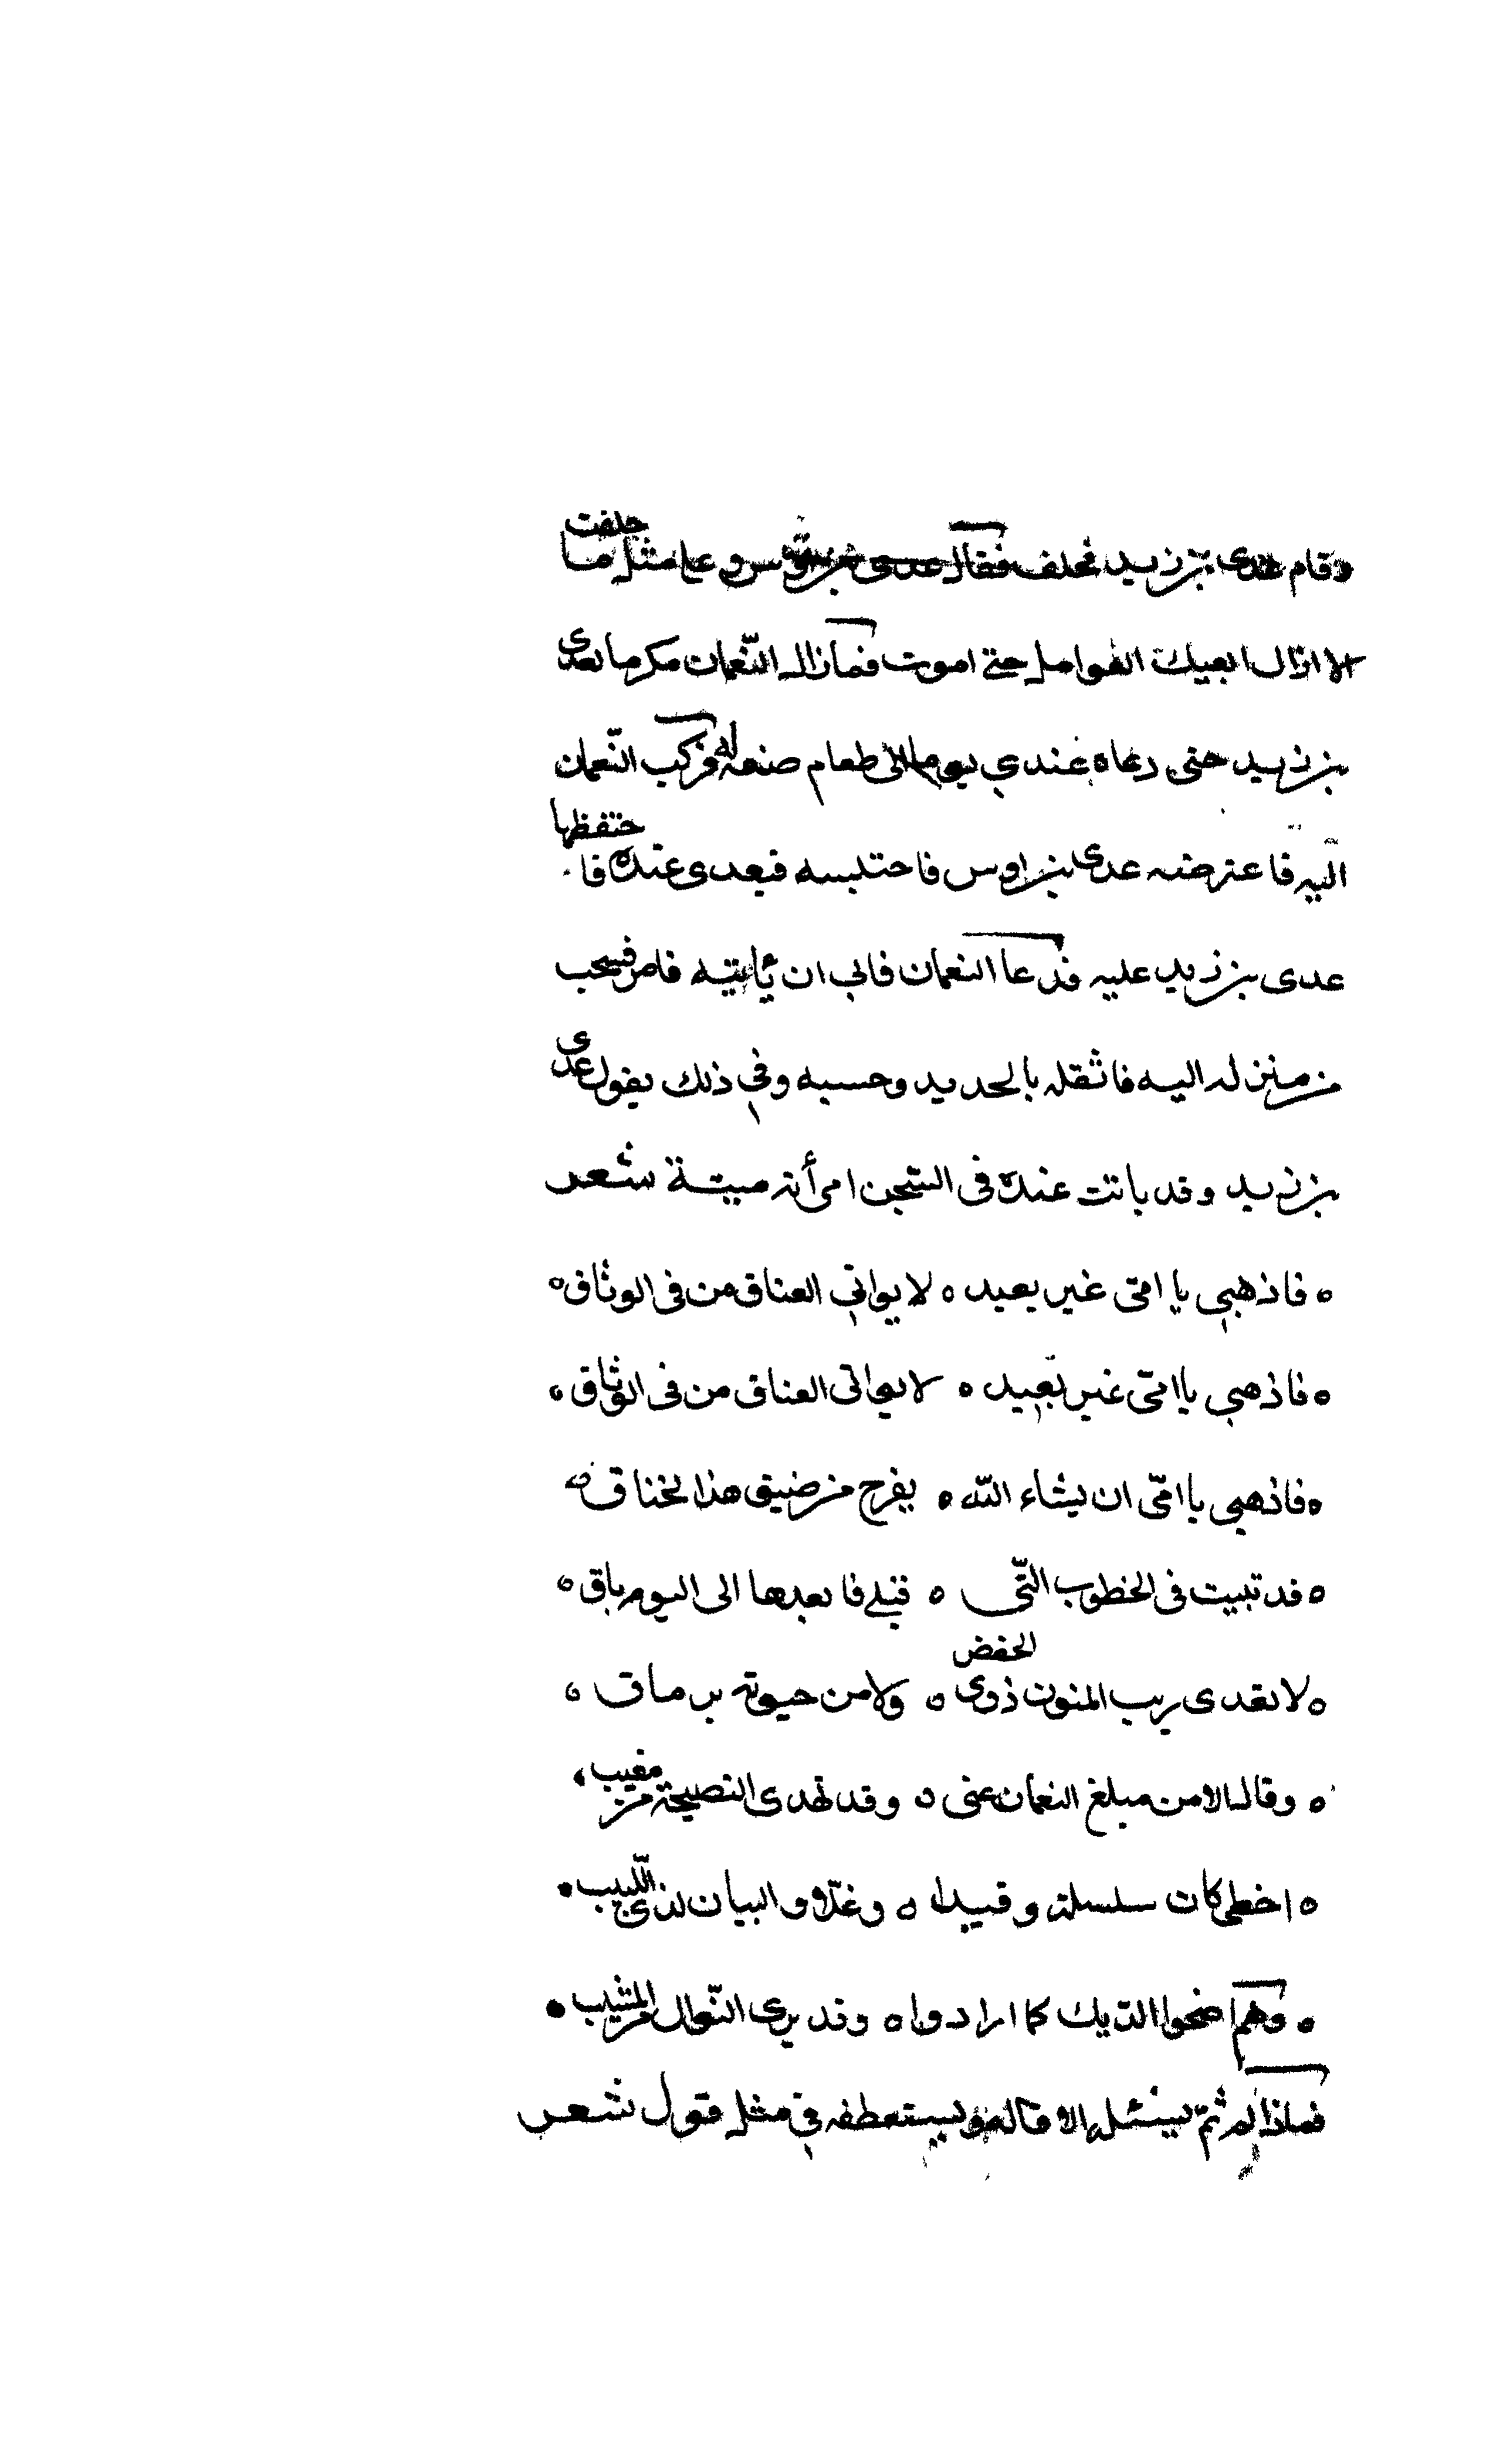 وقام عدى بن زيد فحلف فقال عدى بن اوس وعلى مثل ما حلفت
الا ازال ابغيك الغوامل حتى اموت فما زال النّعمان مكرما لعدى
بن زيد حتى دعاه عندي يوما الى طعام صنعه له فركب النّعمان
اليه فاعترضه عدى بن اوس فاحتبسه فبعدى عنده فاحتفظها
عدى بن زيد عليه فدعا النعمان فابى ان يأتيه فامر فسحب
من منزله اليه فاثقله بالحديد وحسبه وفي ذلك يقول عدى
بن زيد وقد باتت عنده فى السّجن امرأته مبيتة شعر
ه فاذهبي يا امتى غير بعيد ه لا يواتي العناق من فى الوثاق ه
ه فاذهبي يا امتى غير بعيد ه لا يواتى العناق من فى الوثاق ه
ه فاذهبي يا امّى ان يشاء اللّه ه يفرج من ضيق هذا لخناق ه
ه قد تبيت فى الخطوب التّى ه قبلے فا بعدها الى اليوم باق ه
ه لا تعدى ريب المنون ذوى الحفض ه ولا من حيوته برماق ه
ه وقال الا من مبلغ النعمان عنى ه وقد تهدى النصيحة من مغيب
ه اخطى كان سلسلة وقيدا ه وغلّا والبيان لذى اللّبيب
ه وهم اضحوا الديك كما ارادوا ه وقد يرجى النّوال من المثيب
فماذا لم ثمّ يسئله الا قاله ويستعطفه في مثل قول شعر